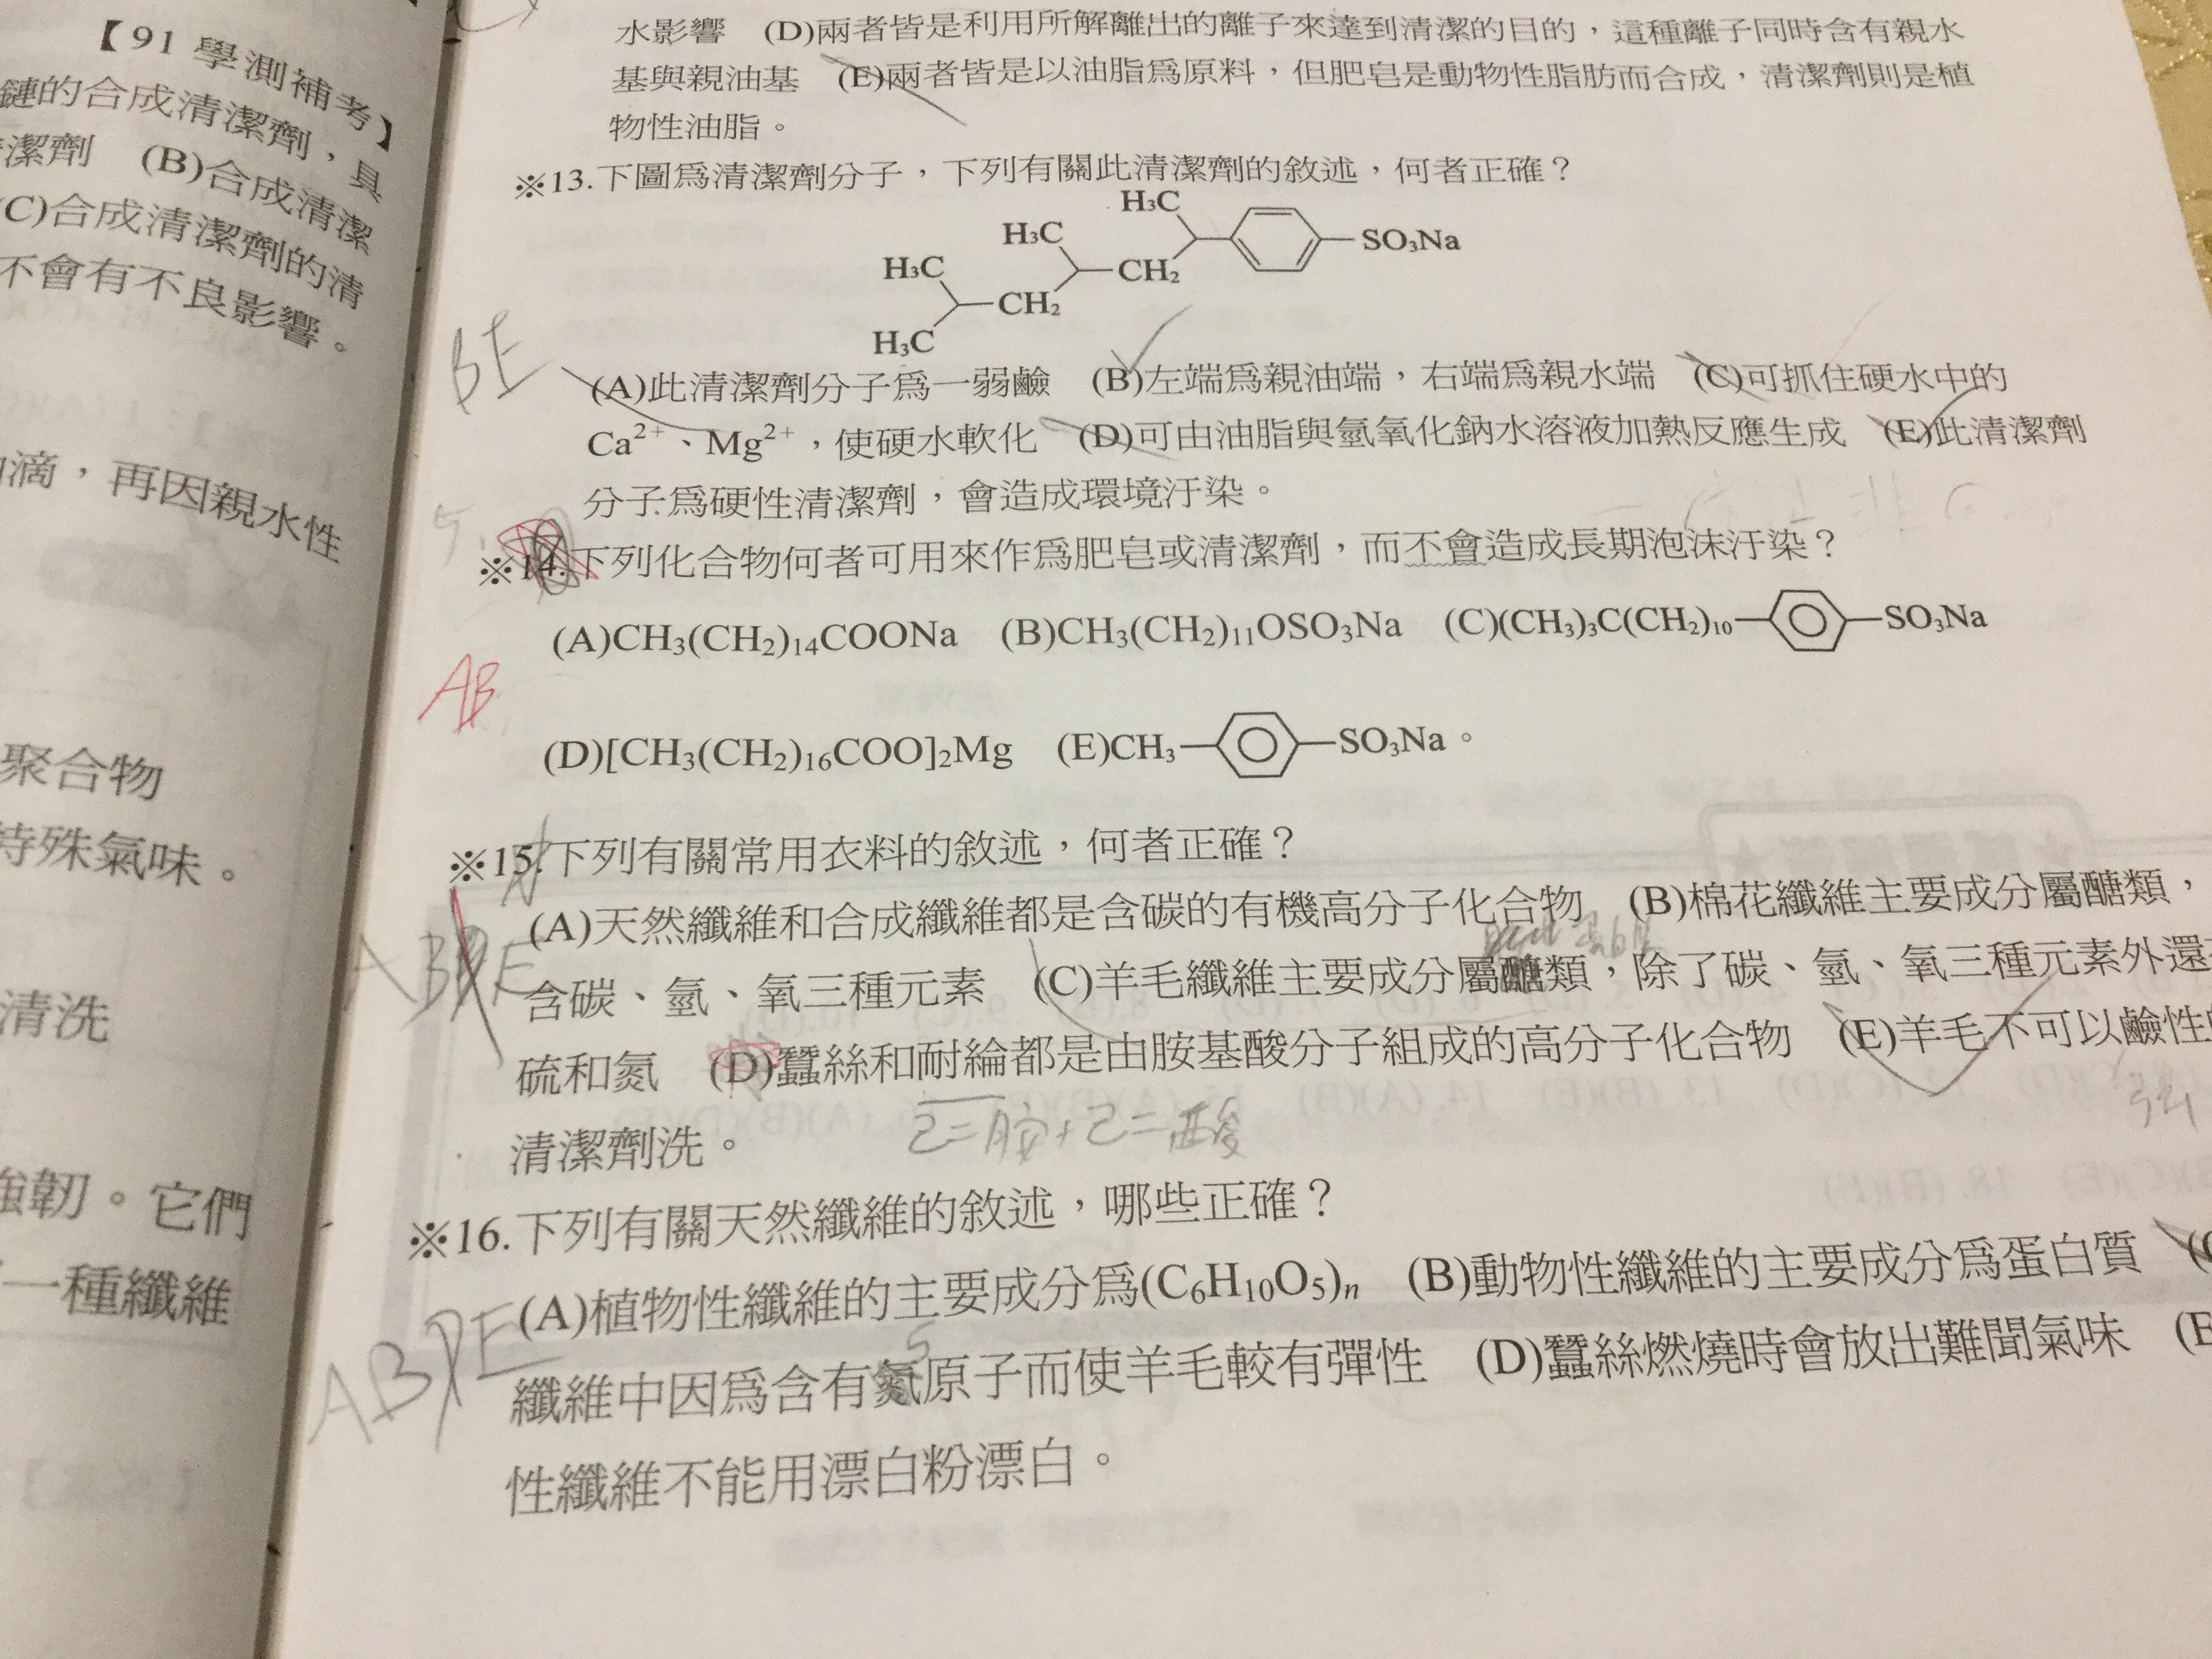 【91 學測補考】
鏈的合成清潔劑，具
潔劑 (B)合成清潔
(C)合成清潔劑的清
不會有不良影響。
滴，再因親水性
聚合物
特殊氣味。
清洗
強韌。它們
一種纖維
水影響 (D)兩者皆是利用所解離出的離子來達到清潔的目的，這種離子同時含有親水
基與親油基 (E)兩者皆是以油脂為原料，但肥皂是動物性脂肪而合成，清潔劑則是植
物性油脂。
※13.下圖為清潔劑分子，下列有關此清潔劑的敘述，何者正確？
H₃C
H₃C
SO₃Na
H₃C
CH₂
CH₂
H₃C
BE
(A)此清潔劑分子為一弱鹼 (B)左端為親油端，右端為親水端 (C)可抓住硬水中的
Ca²⁺、Mg²⁺，使硬水軟化 (D)可由油脂與氫氧化鈉水溶液加熱反應生成 (E)此清潔劑
分子為硬性清潔劑，會造成環境汙染。
※14.下列化合物何者可用來作為肥皂或清潔劑，而不會造成長期泡沫汙染？
(A)CH₃(CH₂)₁₄COONa (B)CH₃(CH₂)₁₁OSO₃Na (C)(CH₃)₃C(CH₂)₁₀ SO₃Na
AB
(D)[CH₃(CH₂)₁₆COO]₂Mg (E)CH₃ SO₃Na。
※15.下列有關常用衣料的敘述，何者正確？
(A)天然纖維和合成纖維都是含碳的有機高分子化合物 (B)棉花纖維主要成分屬醣類，
含碳、氫、氧三種元素 (C)羊毛纖維主要成分屬醣類，除了碳、氫、氧三種元素外還
硫和氮 (D)蠶絲和耐綸都是由胺基酸分子組成的高分子化合物 (E)羊毛不可以鹼性
己二胺+己二酸
清潔劑洗。
※16.下列有關天然纖維的敘述，哪些正確？
(A)植物性纖維的主要成分為(C₆H₁₀O₅)n (B)動物性纖維的主要成分為蛋白質
ABDE
纖維中因為含有氮原子而使羊毛較有彈性 (D)蠶絲燃燒時會放出難聞氣味 (E
S
性纖維不能用漂白粉漂白。